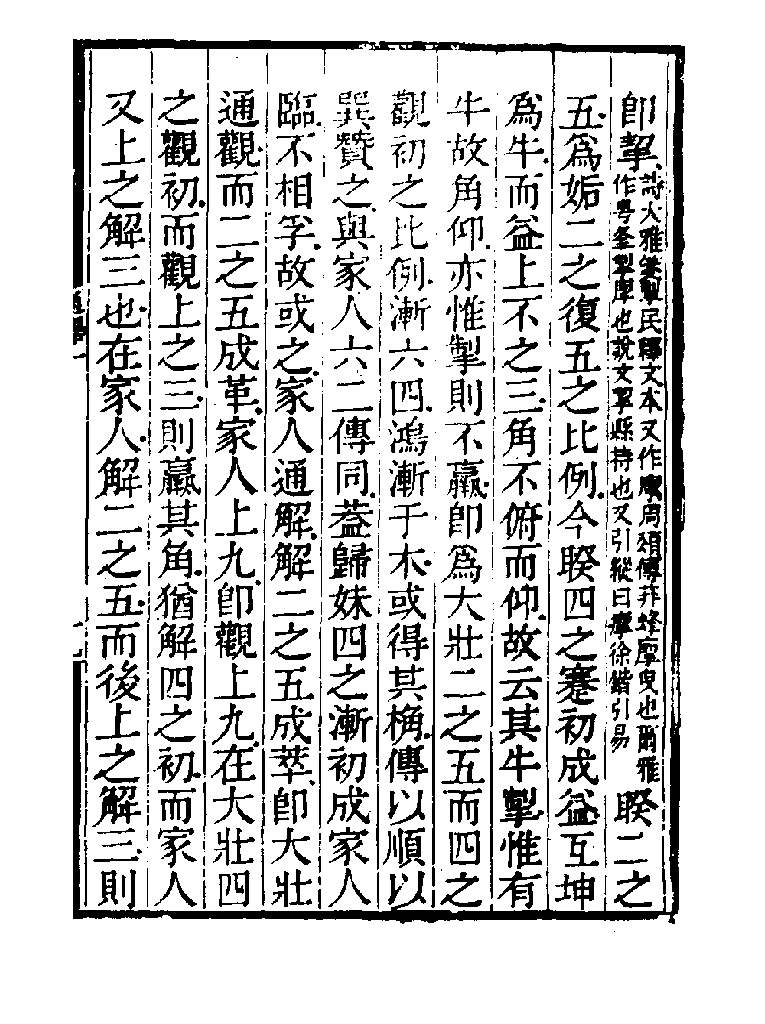 即掣
詩大雅箋掣民釋文本又作摩周頌傳荓蜂摩曳也爾雅
作甹夆掣也說文挈縣持也又引縱曰徐鍇引易
睽二之
五爲姤二之復五之比例今睽四之蹇初成益互坤
爲牛而益上不之三角不俯而仰故云其牛掣惟有
牛故角仰亦惟掣則不羸即爲大壯二之五而四之
觀初之比例漸六四鴻漸于木或得其桷傳以順以
巽贊之與家人六二傳同葢歸妹四之漸初成家人
臨不相孚故或之家人通解解二之五成萃即大壯
通觀而二之五成革家人上九即觀上九在大壯四
之觀初而觀上之三則羸其角猶解四之初而家人
又上之解三也在家人解二之五而後上之解三則